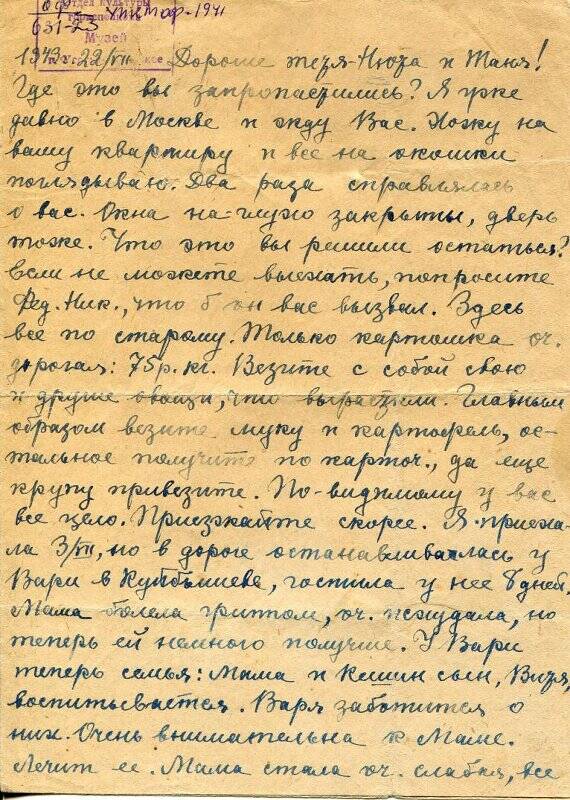 Отдел Культуры
Музей
631-25
1943 29/VII Дорогие тетя-Нюта и Таня!
Где это вы запропастились? Я уже
давно в Москве и жду Вас. Хожу на
вашу квартиру и все на окошки
поглядываю. Два раза справлялась
о вас. Окна на-глухо закрыты, дверь
тоже. Что это вы решили остаться?
Если не можете выехать, попросите
Фед. Ник., что б он вас вызвал. Здесь
все по старому. Только картошка оч.
дорогая: 75р. кг. Везите с собой свою
и другие овощи, что вырастили. Главным
образом везите муку и картофель, ос-
тальное получите по карточ., да еще
крупу привезите. По-видимому у вас
все цело. Приезжайте скорее. Я приеха-
ла 3/VII, но в дороге останавливалась у
Вари в Куйбышеве, гостила у нее 8 дней.
Мама болела гриппом, оч. исхудала, но
теперь ей немного получше. У Вари
теперь семья: Мама и Кешин сын, Витя,
воспитывается. Варя заботится о
них. Очень внимательна к Маме.
Лечит ее. Мама стала оч. слабая, все